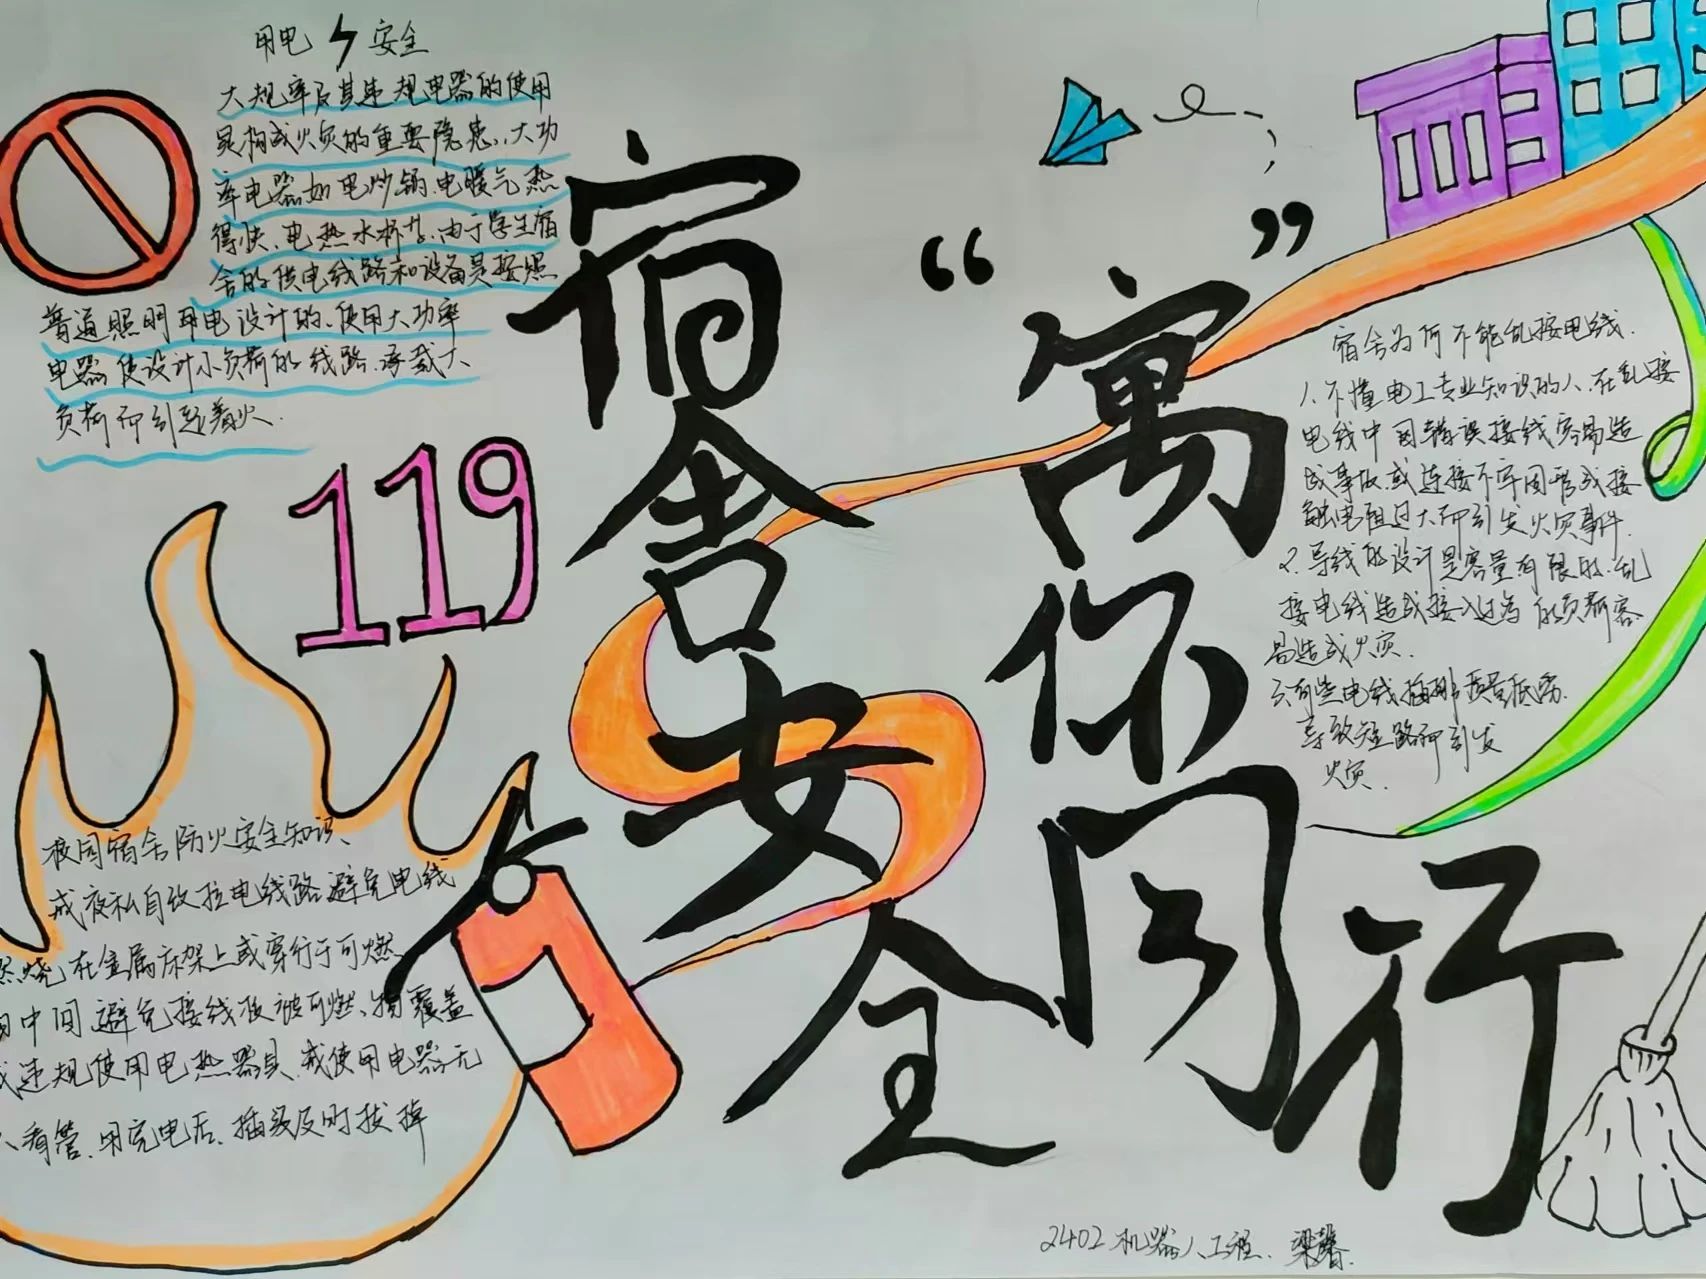 用电 安全
大规率及其违规电器的使用
是构成火灾的重要隐患,大功
率电器如电炒锅、电暖气热
得快、电热水杯等,由于学生宿
舍的供电线路和设备是按照
普通照明用电设计的、使用大功率
电器使设计小负荷的线路,承载大
负荷而引起着火.
119
宿舍安全
“寓”
你同行
宿舍为何不能乱接电线.
1.不懂电工专业知识的人、在乱接
电线中因错误接线容易造
成事故.或连接不牢固形成接
触电阻过大而引发火灾事件.
2.导线的设计是容量有限的.乱
接电线造成接入过多的负荷容
易造成火灾.
3.有些电线插排质量低劣.
导致短路而引发
火灾.
校园宿舍防火安全知识、
或夜私自改拉电线路避免电线
燃烧在金属床架上或穿行于可燃
中间避免接线板被可燃、物覆盖
违规使用电热器具.或使用电器无
人看管.用完电后、插头及时拔掉
2402机器人工程.梁馨.